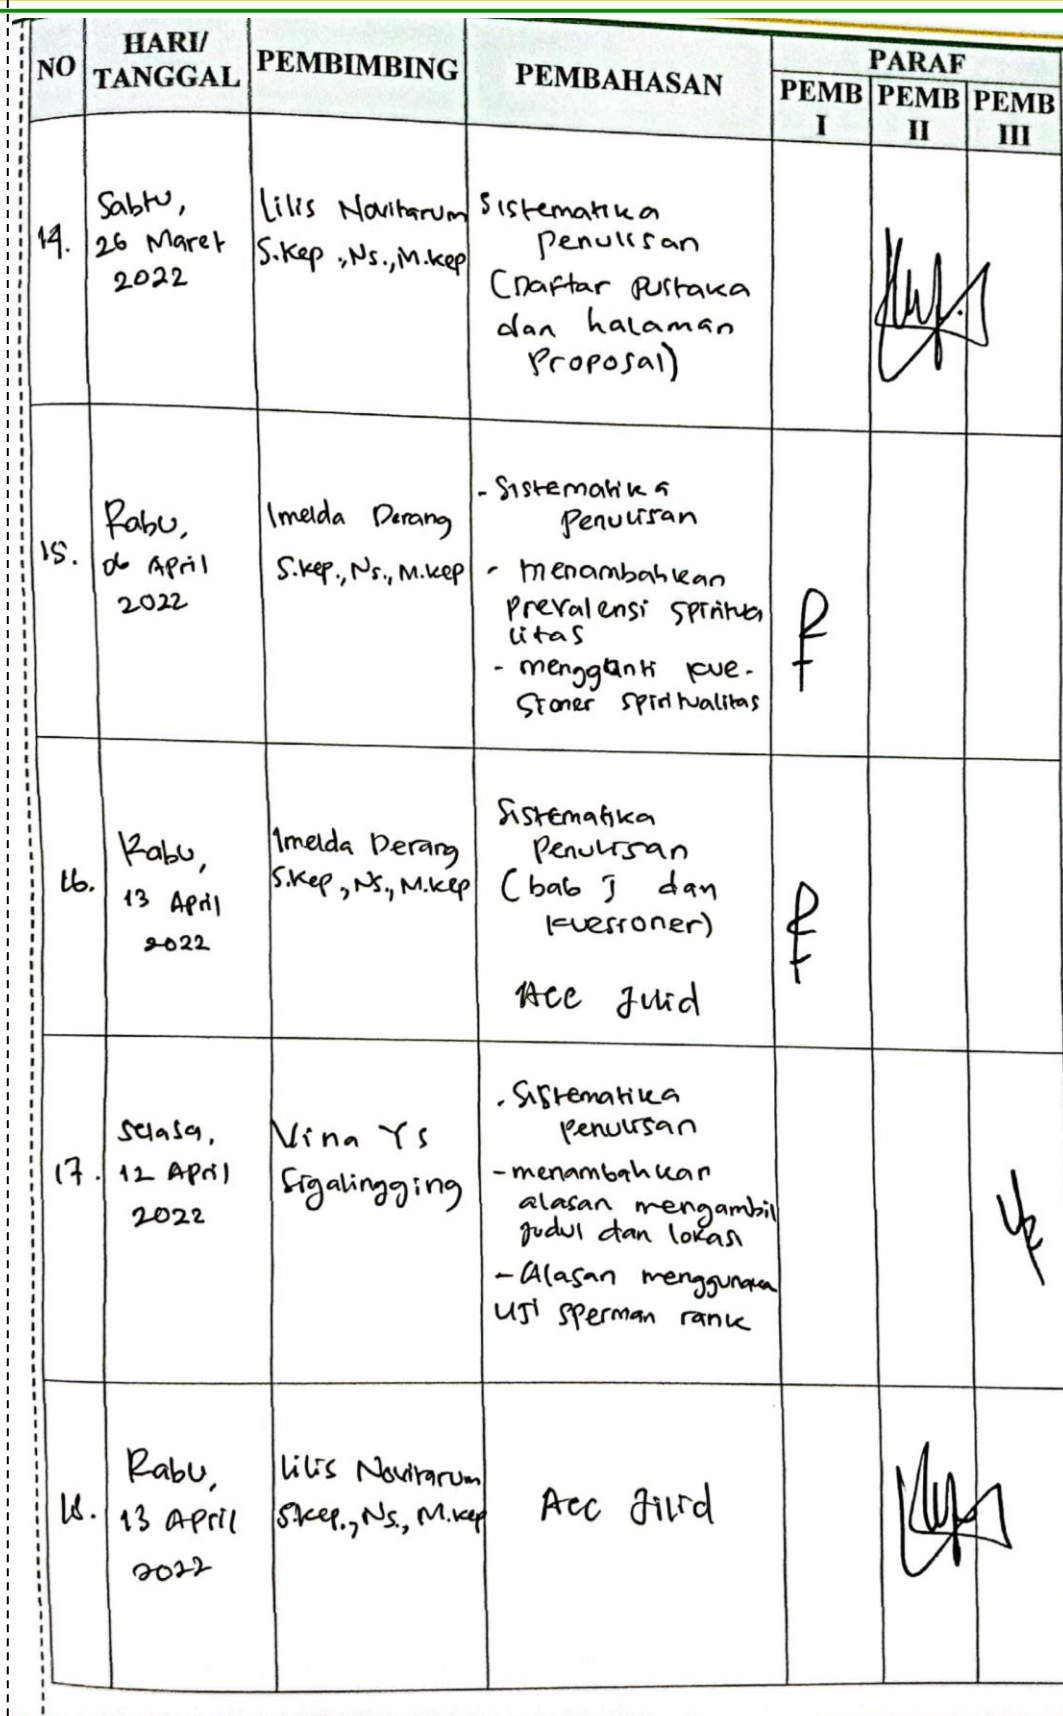 NO HARI/ TANGGAL PEMBIMBING PEMBAHASAN PARAF
PEMB I PEMB II PEMB III
14.
Sabtu,
26 Maret
2022
Lilis Novitarum
S.Kep.,Ns.,M.Kep
Sistematika
Penulisan
(Daftar Pustaka
dan halaman
Proposal)
15.
Rabu,
06 April
2022
Imelda Derang
S.Kep.,Ns.,M.Kep
- Sistematika
Penulisan
- menambahkan
Prevalensi Spiritua
litas
- mengganti kue-
sioner Spiritualitas
16.
Rabu,
13 April
2022
Imelda Derang
S.Kep.,Ns.,M.Kep
Sistematika
Penulisan
(bab I dan
kuesioner)
Acc Jilid
17.
Selasa,
12 April
2022
Vina Ys
Sigalingging
- Sistematika
Penulisan
- menambahkan
alasan mengambil
judul dan lokasi
- Alasan menggunaka
Uji Sperman rank
18.
Rabu,
13 April
2022
Lilis Novitarum
S.Kep.,Ns.,M.Kep
Acc Jilid